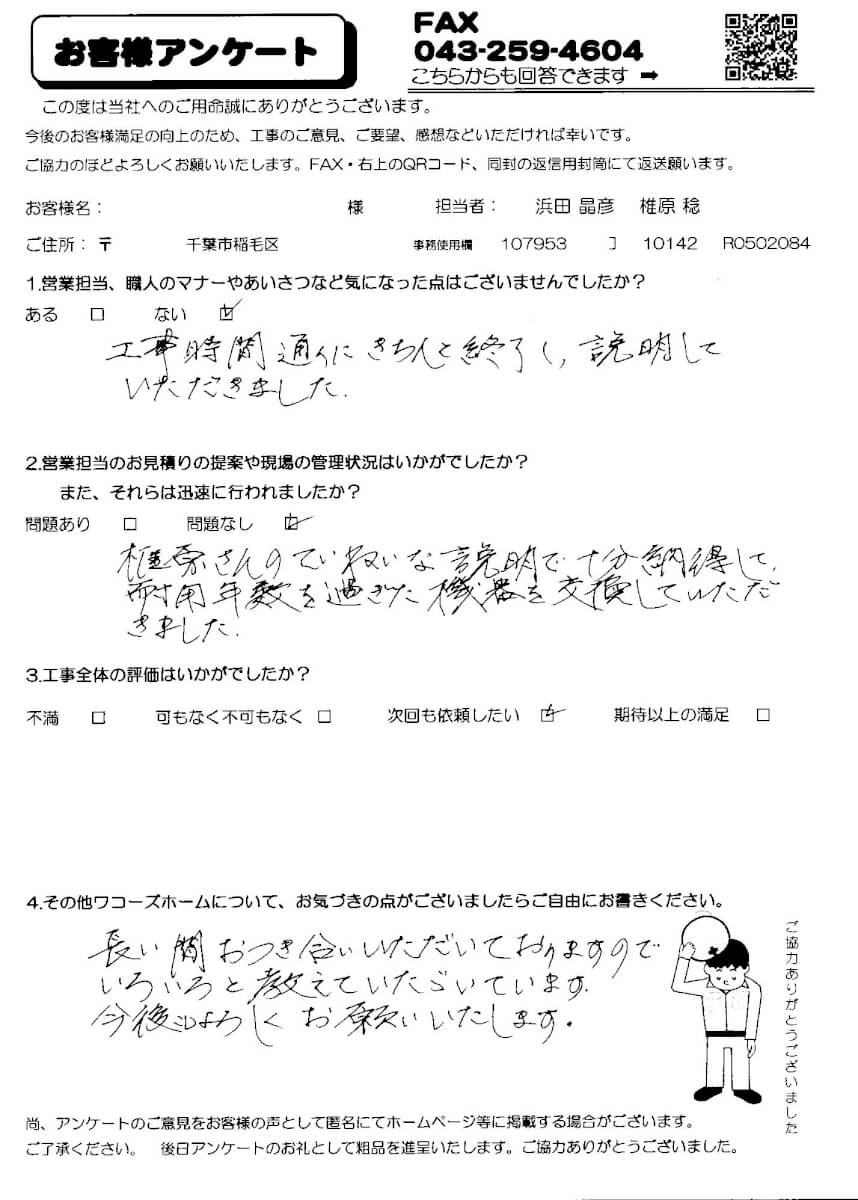 お客様アンケート
FAX
043-259-4604
こちらからも回答できます ➡
この度は当社へのご用命誠にありがとうございます。
今後のお客様満足の向上のため、工事のご意見、ご要望、感想などいただければ幸いです。
ご協力のほどよろしくお願いいたします。FAX・右上のQRコード、同封の返信用封筒にて返送願います。
お客様名： 様 担当者： 浜田 晶彦 椎原 稔
ご住所：〒 千葉市稲毛区 事務使用欄 107953 ] 10142 R0502084
1.営業担当、職人のマナーやあいさつなど気になった点はございませんでしたか？
ある □ ない ☑
工事時間通りにきちんと終了し、説明して
いただきました.
2.営業担当のお見積りの提案や現場の管理状況はいかがでしたか？
また、それらは迅速に行われましたか？
問題あり □ 問題なし ☑
椎原さんのていねいな説明で十分納得して、
耐用年数を過ぎた機器を交換していただ
きました.
3.工事全体の評価はいかがでしたか？
不満 □ 可もなく不可もなく □ 次回も依頼したい ☑ 期待以上の満足 □
4.その他ワコーズホームについて、お気づきの点がございましたらご自由にお書きください。
長い間おつき合いいただいておりますので
いろいろと教えていただいています.
今後もよろしくお願いいたします.
ご協力ありがとうございました
尚、アンケートのご意見をお客様の声として匿名にてホームページ等に掲載する場合がございます。
ご了承ください。 後日アンケートのお礼として粗品を進呈いたします。ご協力ありがとうございました。